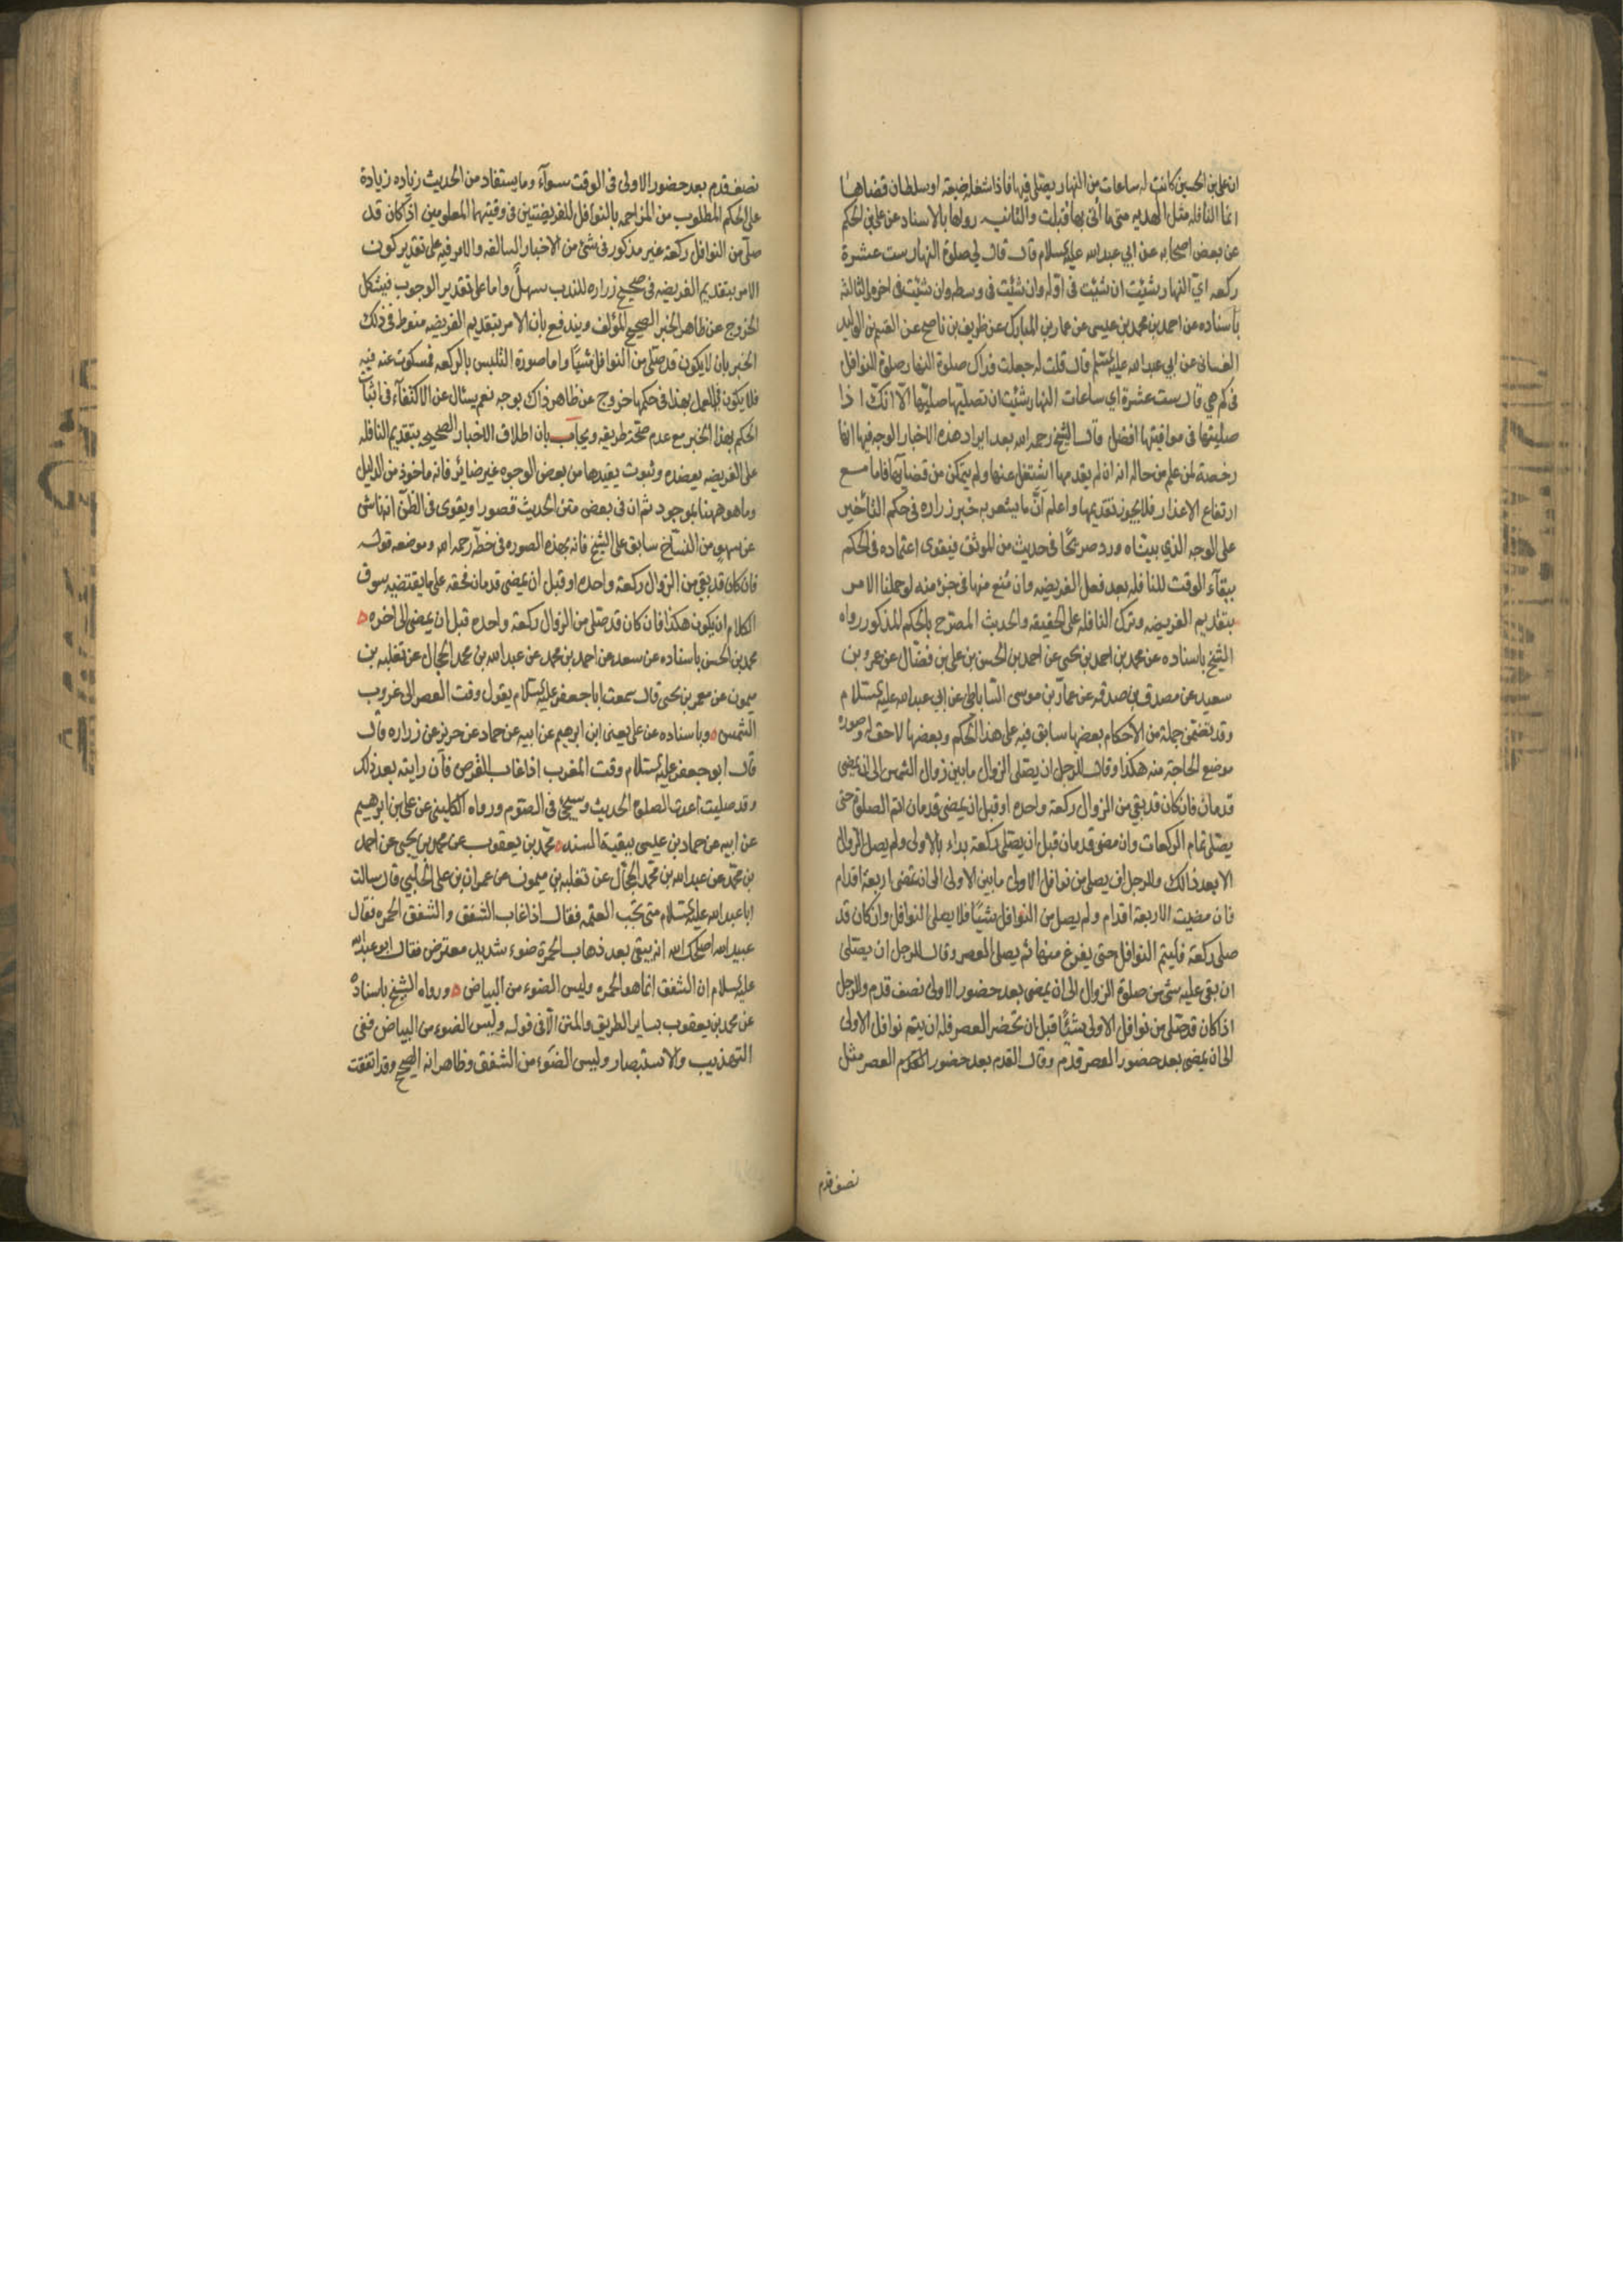 ان على بن الحسين كانت له ساعات من النهار يصلى فيها فاذا شغله ضيعة او سلطان قضاها
انما النافله مثل الهديه متى ما أتى بها قبلت والثانيه رواها بالاسناد عن على بن الحكم
عن بعض اصحابه عن ابي عبد الله عليه السلام قال قال لي صلوة النهار ست عشرة
ركعه اىّ النهار شئت ان شئت فى اوله وان شئت فى وسطه وان شئت فى اخره والثالثة
باسناده عن احمد بن محمد بن عيسى عن عمار بن المبارك عن ظريف بن ناصح عن القسم بن الوليد
الغسانى عن ابي عبد الله عليه السلم قال قلت له جعلت فداك صلوة النهار صلوة النوافل
فى كم هي قال ست عشرة اى ساعات النهار شئت ان تصليها صليتها الّا انّك اذا
صليتها فى مواقيتها افضل قال الشيخ رحمه الله بعد ايراد هذه الاخبار الوجه فيها انها
رخصة لمن علم من حاله انه ان لم يقدمها اشتغل عنها ولم يتمكن من قضائها فاما مع
ارتفاع الاعذار فلا يجوز تقديمها واعلم أنّ ما يشعر به خبر زراره فى حكم التأخير
على الوجه الذي بيناه ورد صريحًا فى حديث من الموثق فيقوى اعتماده فى الحكم
ببقآء الوقت للنافله بعد فعل الفريضه وان مُنع منها فى جزء منه لو حملنا الامر
بتقديم الفريضه وترك النافله على الحقيقه والحديث المصرّح بالحكم المذكور رواه
الشيخ باسناده عن محمد بن احمد بن يحيى عن احمد بن الحسن بن على بن فضّال عن عمرو بن
سعيد عن مصدق بن صدقه عن عمّار بن موسى الساباطى عن ابي عبد الله عليه السلام
وقد تضمن جملة من الاحكام بعضها سابق فيه على هذا الحكم وبعضها لاحق له وصورة
موضع الحاجة منه هكذا وقال للرجل ان يصلى الزوال ما بين زوال الشمس الى ان يمضى
قدمان فان كان قد بقي من الزوال ركعة واحدة او قبل ان يمضى قدمان اتم الصلوة حتى
يصلى تمام الركعات وان مضى قدمان قبل ان يصلى ركعة بدأ بالاولى ولم يصل الزوال
الا بعد ذالك وللرجل ان يصلى من نوافل الاولى ما بين الاولى الى ان تمضى اربعة اقدام
فان مضيت الاربعة اقدام ولم يصل من النوافل شيئًا فلا يصلى النوافل وان كان قد
صلى ركعة فليتم النوافل حتى يفرغ منها ثم يصلى العصر وقال للرجل ان يصلى
ان بقى عليه شئ من صلوة الزوال الى ان يمضى بعد حضور الاولى نصف قدم وللرجل
اذا كان قد صلى من نوافل الاولى شيئًا قبل ان تحضر العصر فله ان يتم نوافل الاولى
الى ان يمضى بعد حضور العصر قدم وقال القدم بعد حضور العصر مثل
نصف قدم
نصف قدم بعد حضور الاولى فى الوقت سوآء وما يستفاد من الحديث زياده زيادة
على الحكم المطلوب من المزاحمه بالنوافل للفريضتين فى وقتيهما المعلومين اذا كان قد
صلّى من النوافل ركعة غير مذكور فى شئ من الاخبار السالفه والامر فيه على تقدير كون
الامر بتقديم الفريضه فى صحيح زراره للندب سهل واما على تقدير الوجوب فيشكل
الخروج عن ظاهر الخبر الصحيح المؤلف ويندفع بان الامر بتقديم الفريضه منوط فى ذلك
الخبر بان لا يكون قد صلى من النوافل شيئًا واما صورة التلبس بالركعه فمسكوت عنه فيه
فلا يكون فى العمل بهذا فى حكمها خروج عن ظاهر ذاك بوجه نعم يسئال عن الاكتفآء فى اثبات
الحكم بهذا الخبر مع عدم صحّة طريقه ويجاب بان اطلاق الاخبار الصحيحه بتقديم النافله
على الفريضه يعضده وثبوت تقييدها من بعض الوجوه غير ضائر فانه ماخوذ من الدليل
وما هو ههنا بموجود ثم ان فى بعض متن الحديث قصورا ويقوى فى الظنّ انه ناش
عن سهو من النسّاخ سابق على الشيخ فانه بهذه الصوره فى خطّه رحمه الله وموضعه قوله
فان كان قد بقى من الزوال ركعة واحده او قبل ان يمضى قدمان فحقه على ما يقتضيه سوق
الكلام ان يكون هكذا فان كان قد صلى من الزوال ركعة واحده قبل ان يمضى الى اخره
محمد بن الحسن باسناده عن سعد عن احمد بن محمد عن عبد الله بن محمد الحجال عن ثعلبه بن
ميمون عن معمر بن يحيى قال سمعت ابا جعفر عليه السلام يقول وقت العصر الى غروب
الشمس وباسناده عن على يعنى ابن ابرهيم عن ابيه عن حماد عن حريز عن زراره قال
قال ابو جعفر عليه السلام وقت المغرب اذا غاب القرص فان رايته بعد ذلك
وقد صليت اعدت الصلوة الحديث وسيجئ فى الصوم ورواه الكلينى عن على بن ابرهيم
عن ابيه عن حماد بن عيسى ببقية السند محمّد بن يعقوب عن محمد بن يحيى عن احمد
بن محمّد عن عبد الله بن محمّد الحجّال عن ثعلبه بن ميمون عن عمران بن على الحلبي قال سالت
ابا عبد الله عليه السلام متى تجب العتمه فقال اذا غاب الشفق والشفق الحمره فقال
عبيد الله اصلحك الله انه يبقى بعد ذهاب الحمرة ضوء شديد معترض فقال ابو عبد الله
عليه السلام ان الشفق انما هو الحمره وليس الضوء من البياض ورواه الشيخ باسناده
عن محمد بن يعقوب بساير الطريق والمتن الّا فى قوله وليس الضوء من البياض ففى
التهذيب والاستبصار وليس الضوء من الشفق وظاهر انه الصحيح وقد اتفقت